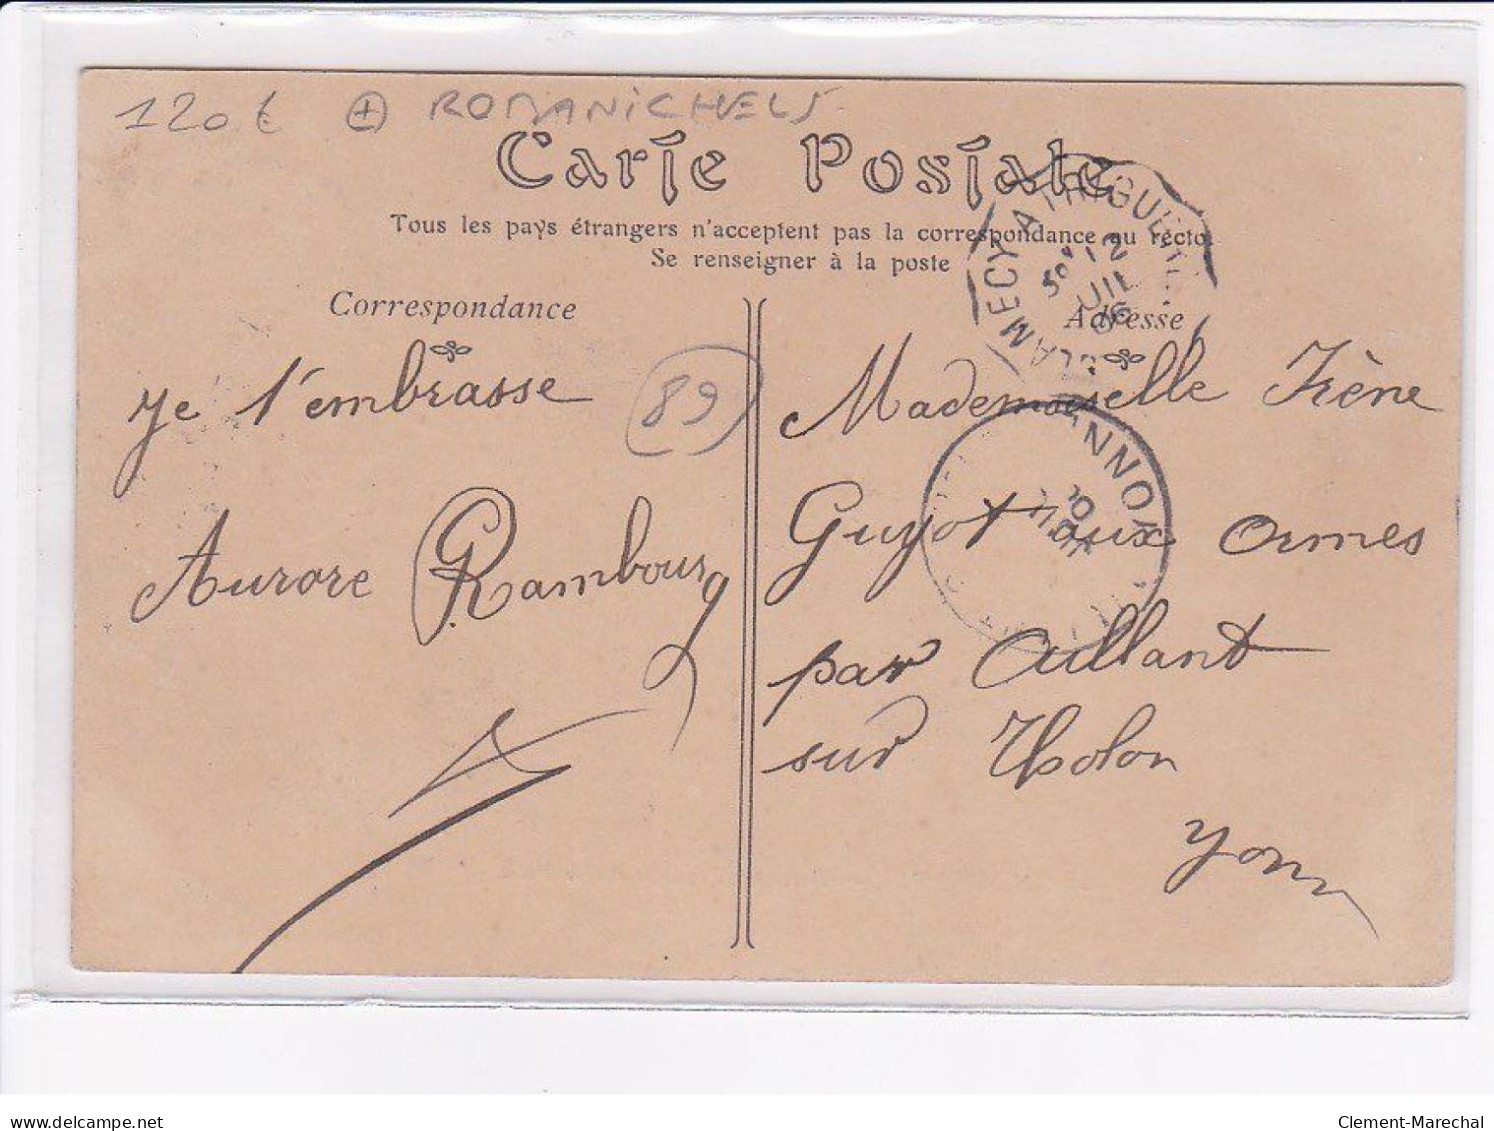 120€ + ROMANICHELS
Carte Postale
Tous les pays étrangers n'acceptent pas la correspondance au recto.
Se renseigner à la poste
Correspondance
Adresse
CLAMECY A TRIGUÈRE
12
JUIL
06
je t'embrasse
89
Aurore Rambourg
Mademoiselle Irène
Guyot aux Ormes
par Aillant
sur Tholon
Yonne
delcampe.net
Clement-Marechal